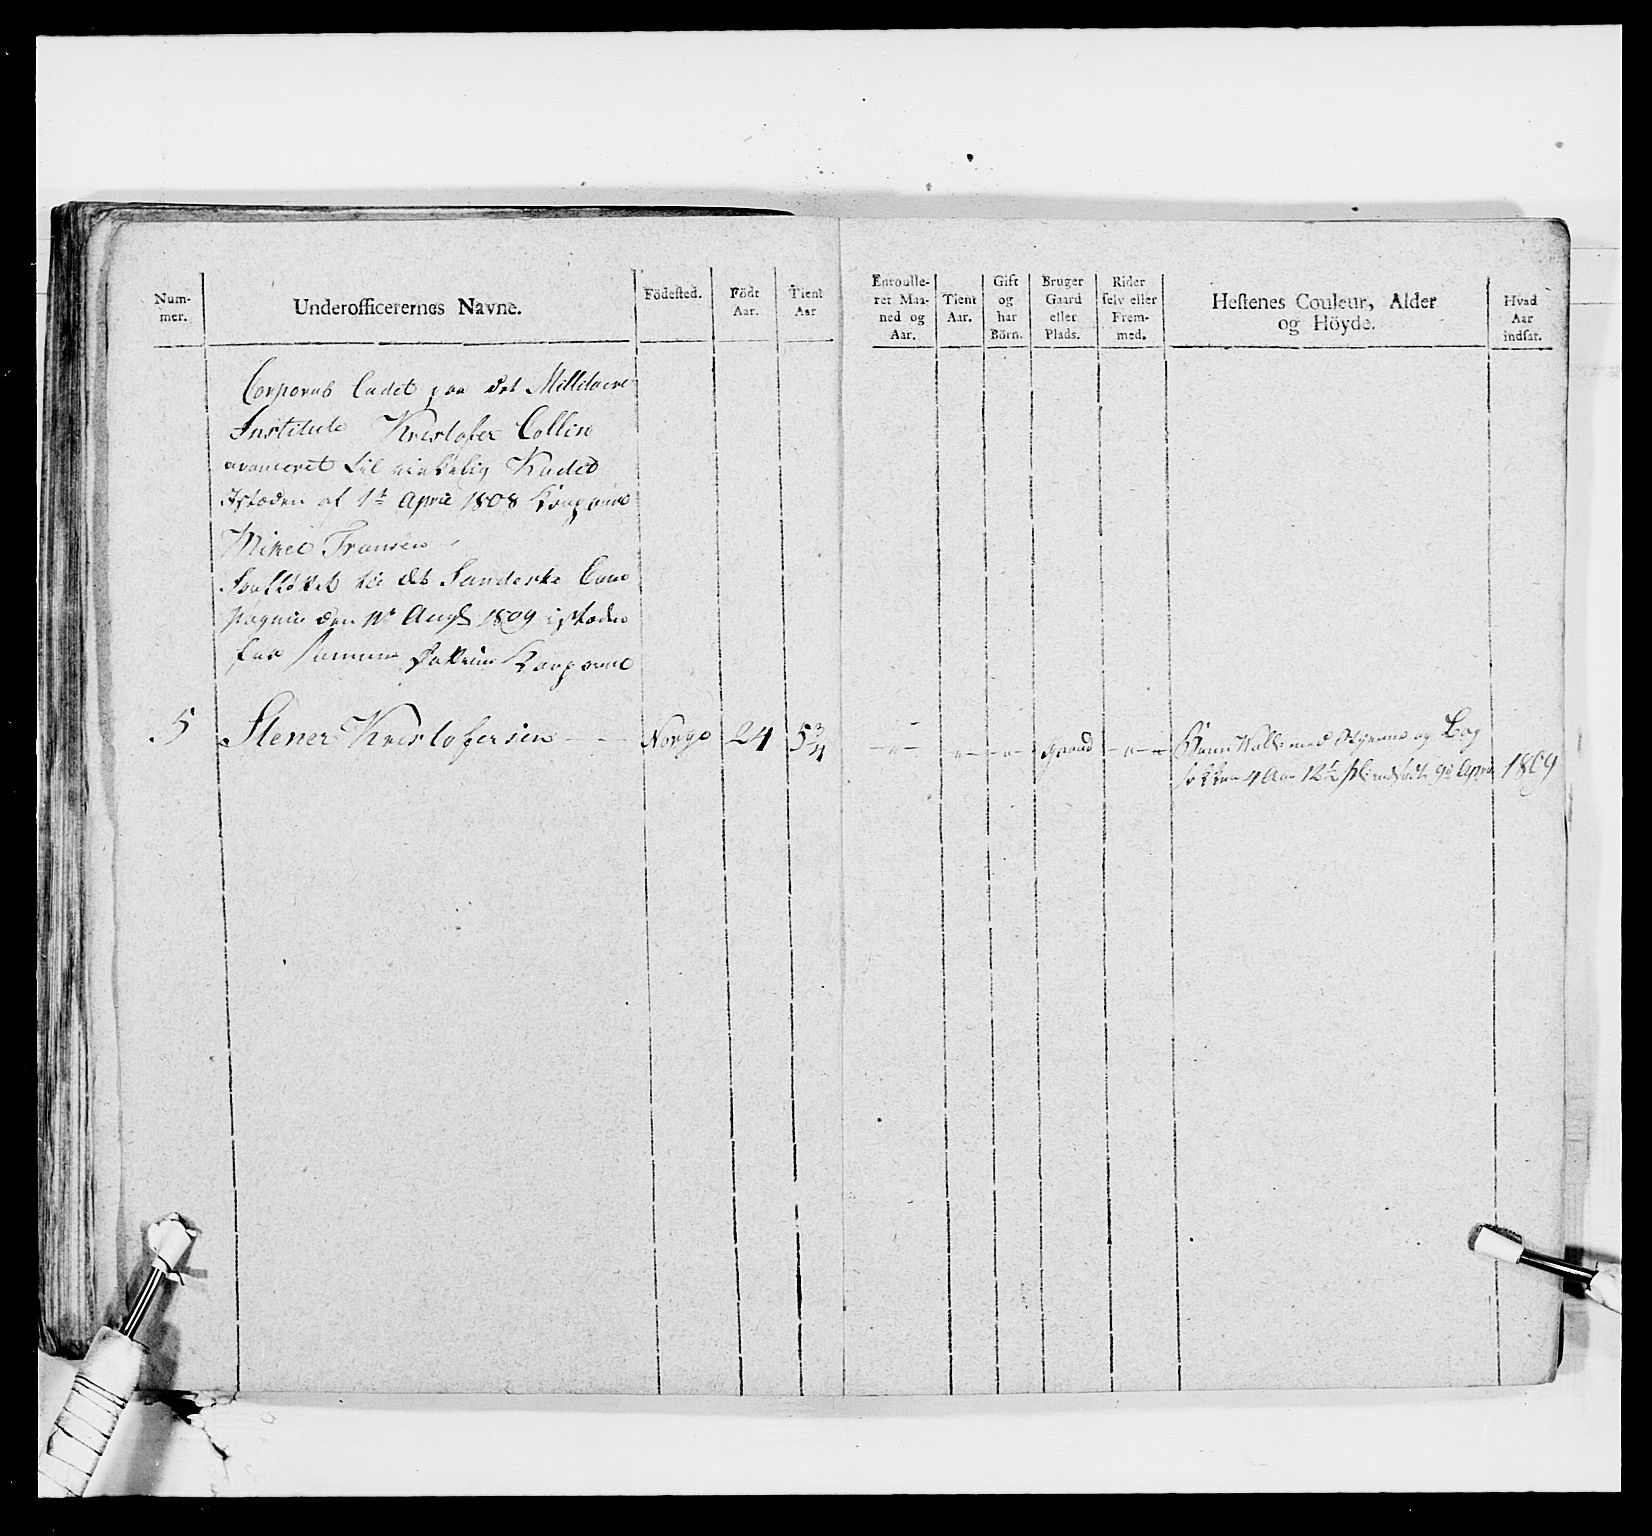 Num-
mer.
Underofficerernes Navne.
Födested.
Födt
Aar.
Tient
Aar
Enroulle-
ret Maa-
ned og
Aar.
Tient
Aar.
Gift
og
har
Börn.
Bruger
Gaard
eller
Plads.
Rider
selv eller
Frem-
med.
Hestenes Couleur, Alder
og Höyde.
Hvad
Aar
indsat.
Corporals Cadet paa det Militaire
Institute Kristofer Collin
avanceret til virkelig Kadet
Istæden af 1te April 1808 Korporal
Mikel Fransen
til det Sunderske Com
pagnie den 1te Augst 1809 istæden
for Korporal
5 Stener Kristofersen Norge 24 5 3/4 Gaard Brun med Stjerne og Bag
4 Aar 12 1/2 indsat April 1809